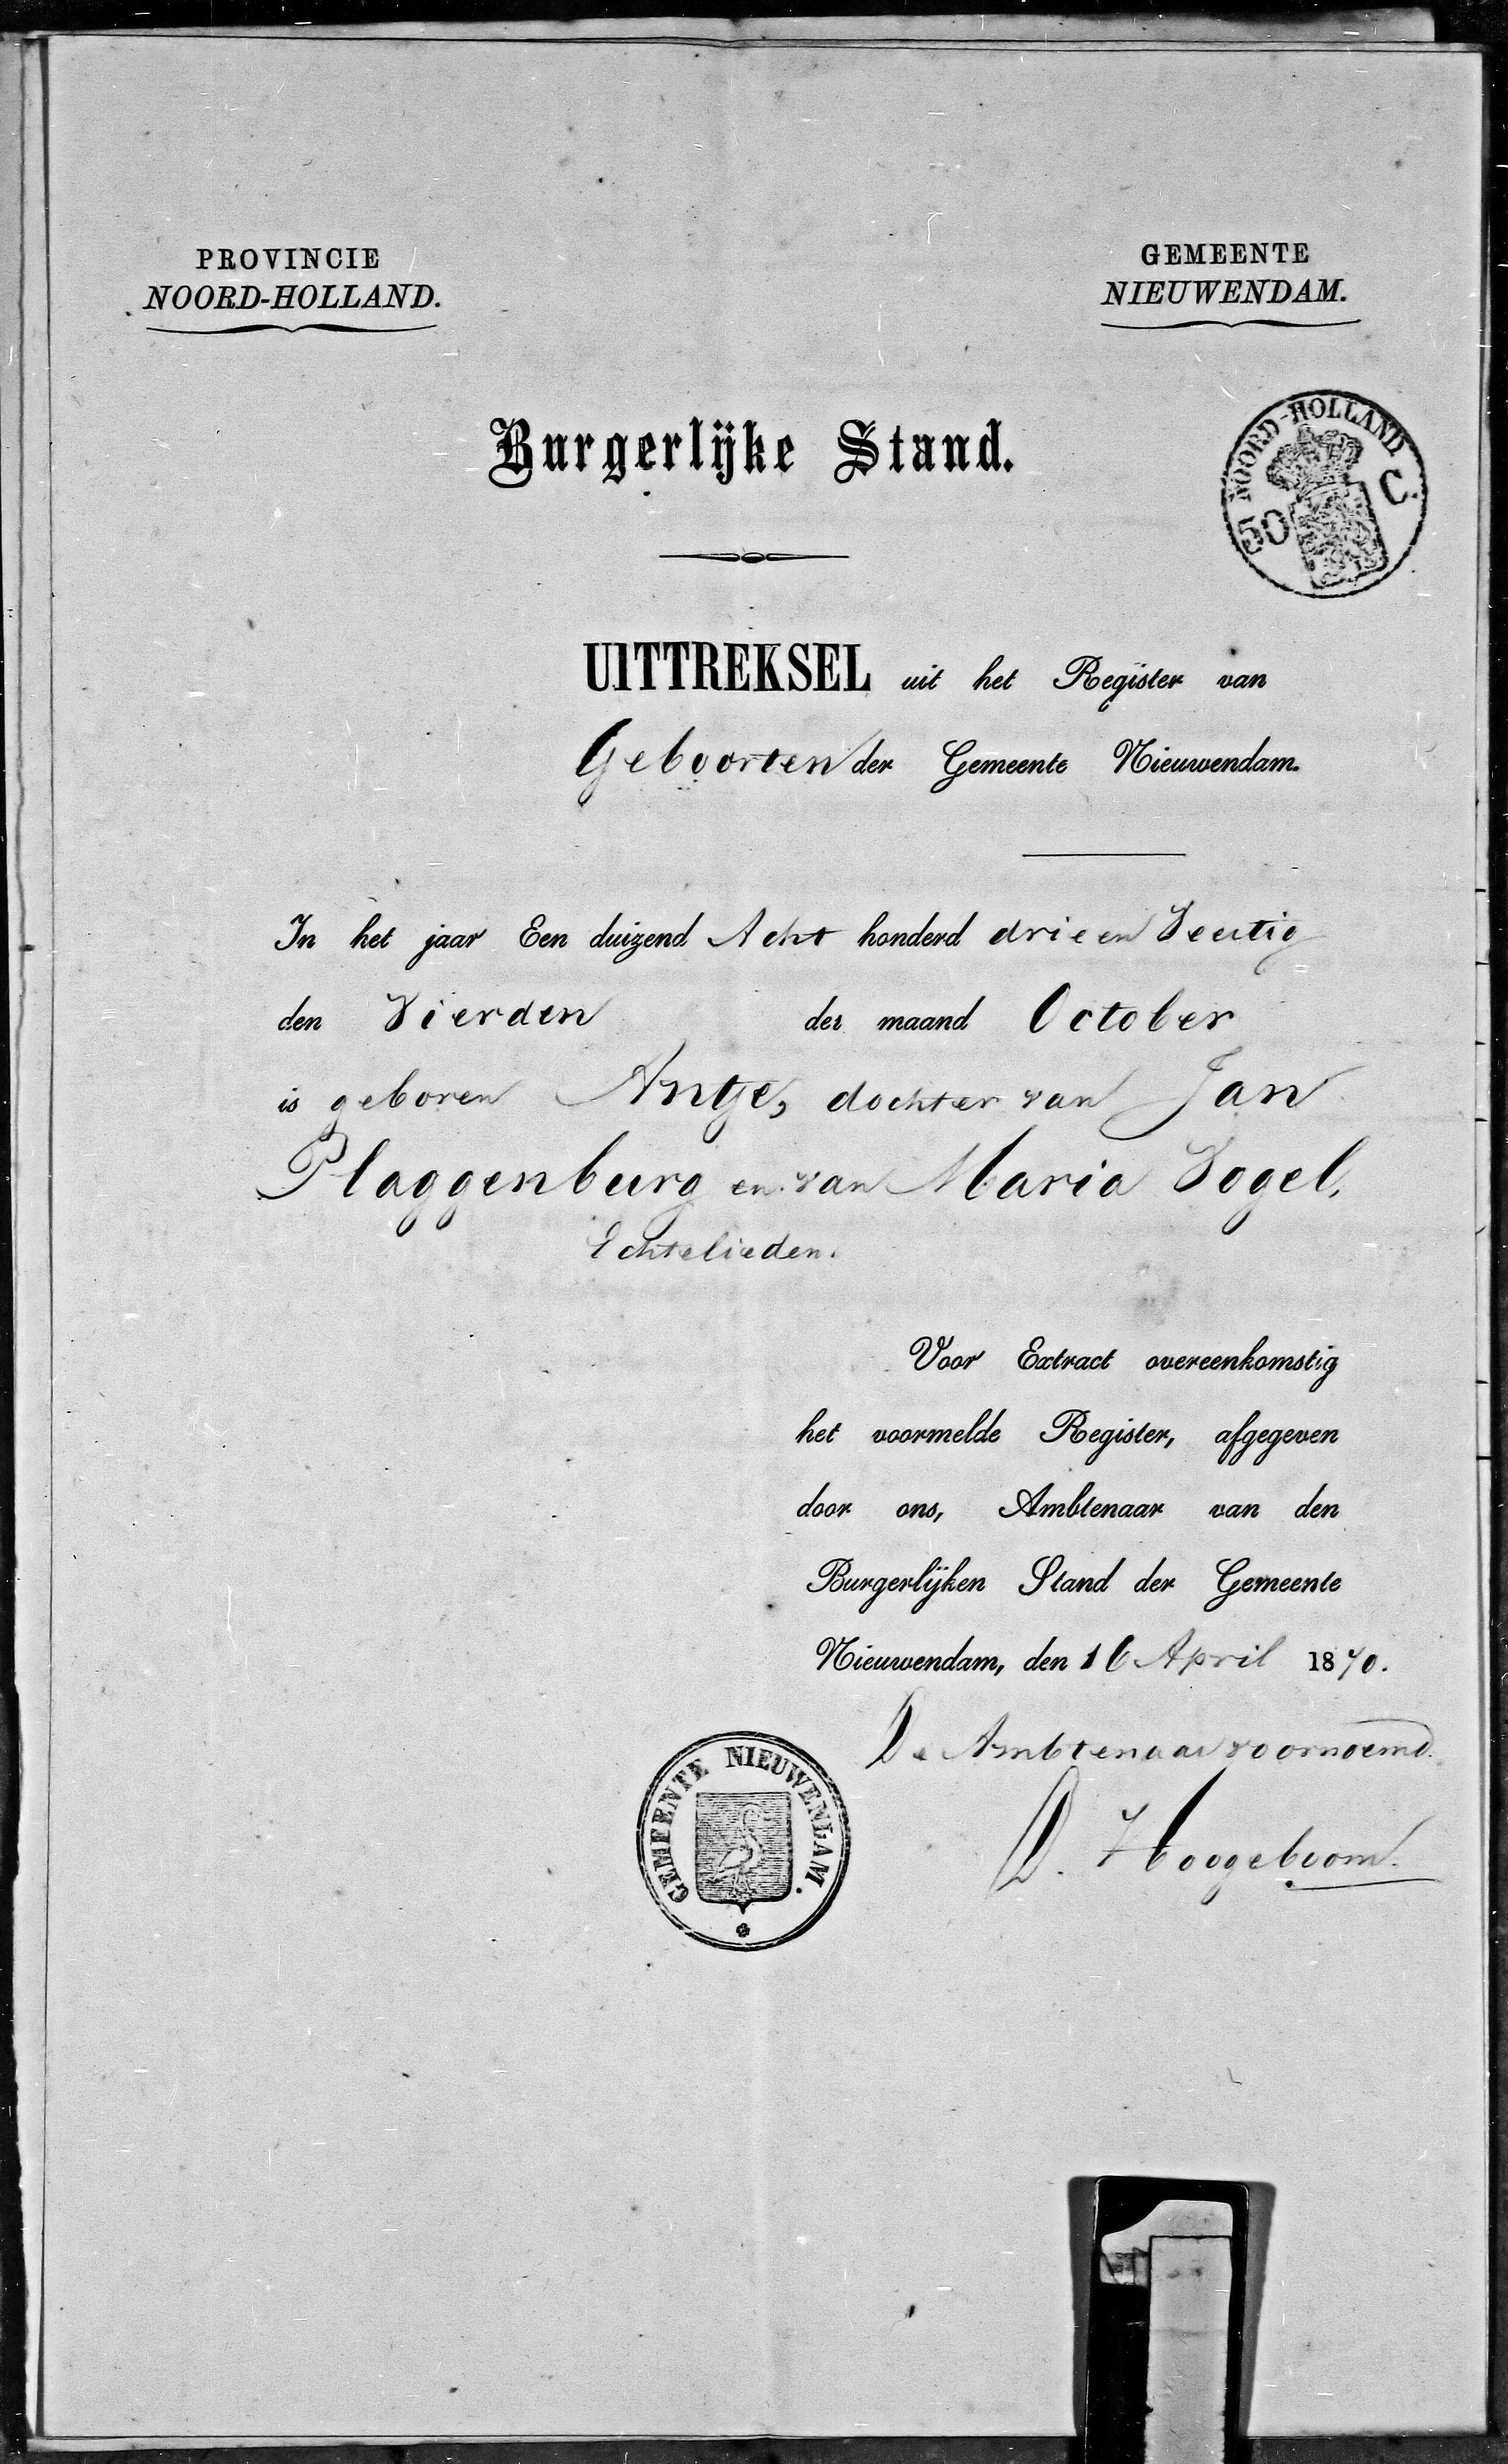 PROVINCIE
NOORD-HOLLAND.
GEMEENTE
NIEUWENDAM.
Burgerlijke Stand.
NOORD-HOLLAND
50 C.
UITTREKSEL uit het Register van
Geboorten der Gemeente Nieuwendam.
In het jaar Een duizend Acht honderd drie en Veertig
den Vierden der maand October
is geboren Antje, dochter van Jan
Plaggenburg en van Maria Vogel,
Echtelieden.
Voor Extract overeenkomstig
het voormelde Register, afgegeven
door ons, Ambtenaar van den
Burgerlijken Stand der Gemeente
Nieuwendam, den 16 April 1870.
De Ambtenaar voornoemd.
D. Hoogeboom.
GEMEENTE NIEUWENDAM.